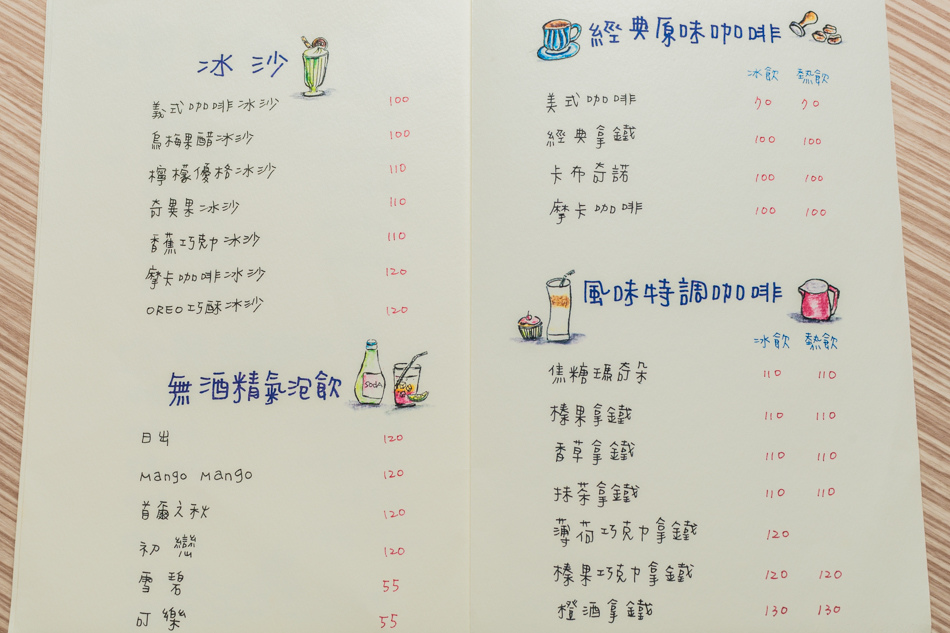 冰沙
義式咖啡冰沙 100
烏梅果醋冰沙 100
檸檬優格冰沙 110
奇異果冰沙 110
香蕉巧克力冰沙 110
摩卡咖啡冰沙 120
OREO巧酥冰沙 120
無酒精氣泡飲
SODA
日出 120
Mango Mango 120
首爾之秋 120
初戀 120
雪碧 55
可樂 55
經典原味咖啡
冰飲 熱飲
美式咖啡 70 70
經典拿鐵 100 100
卡布奇諾 100 100
摩卡咖啡 100 100
風味特調咖啡
冰飲 熱飲
焦糖瑪奇朵 110 110
榛果拿鐵 110 110
香草拿鐵 110 110
抹茶拿鐵 110 110
薄荷巧克力拿鐵 120
榛果巧克力拿鐵 120 120
橙酒拿鐵 130 130